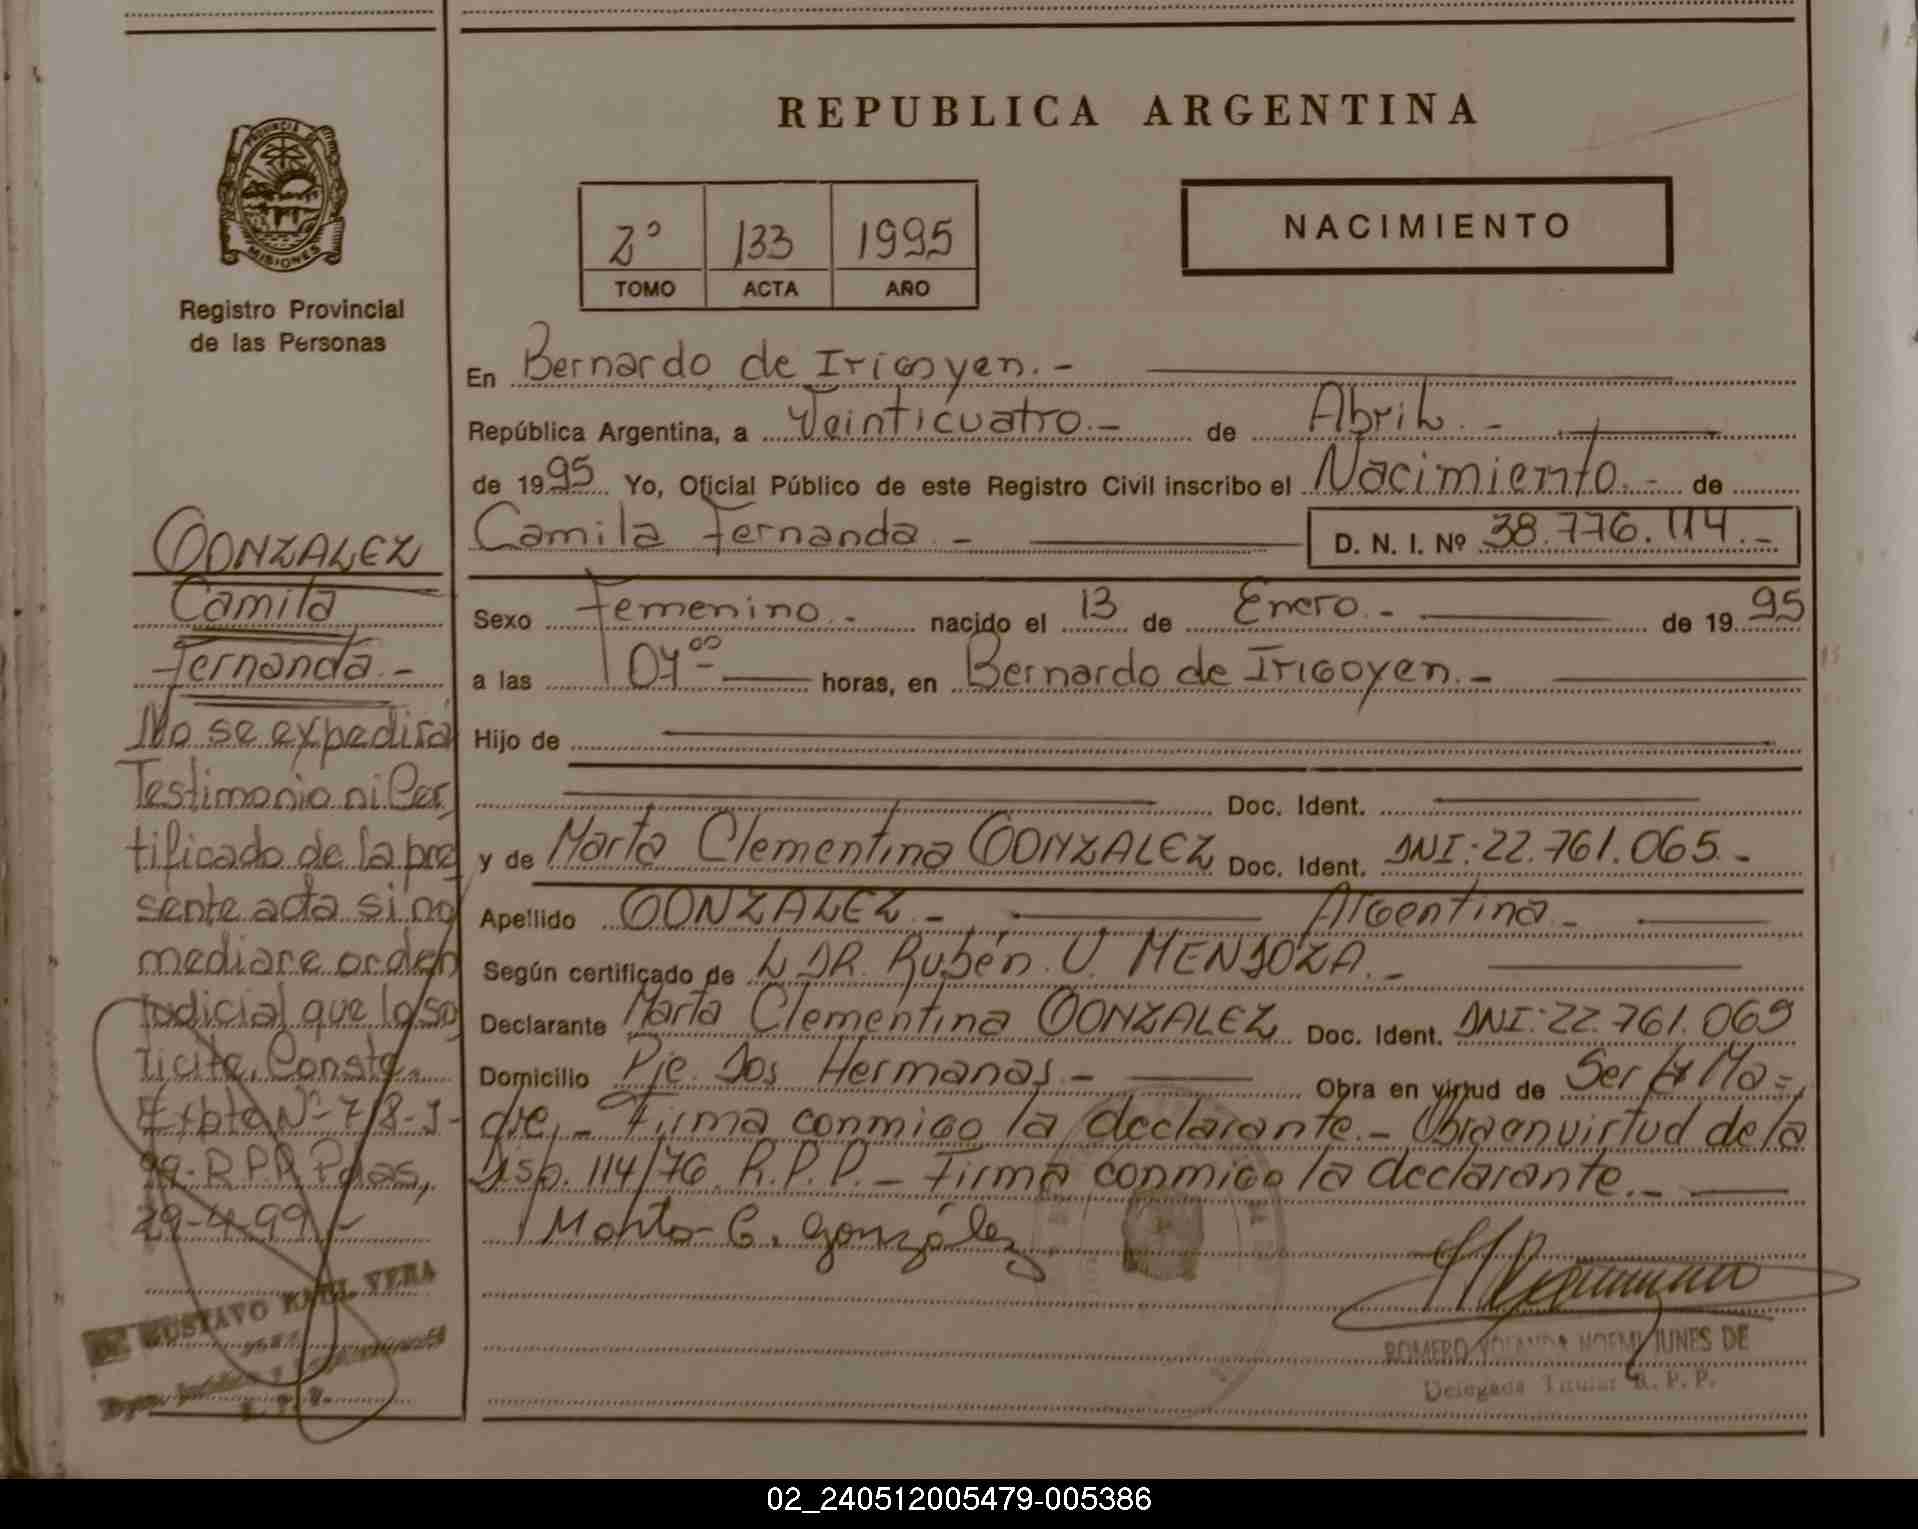 REPUBLICA ARGENTINA
PROVINCIA DE
MISIONES
Registro Provincial
de las Personas
2º 133 1995
TOMO ACTA AÑO
NACIMIENTO
En Bernardo de Irigoyen.-
República Argentina, a Veinticuatro.- de Abril.-
de 1995 Yo, Oficial Público de este Registro Civil inscribo el Nacimiento.- de
Camila Fernanda.- D. N. I. Nº 38.776.114.-
Sexo Femenino.- nacido el 13 de Enero.- de 1995
a las 07⁰⁰ horas, en Bernardo de Irigoyen.-
Hijo de
Doc. Ident.
y de Marta Clementina GONZALEZ Doc. Ident. DNI:22.761.065.-
Apellido GONZALEZ.- Argentina.-
Según certificado de DR. Rubén U. MENDOZA.-
Declarante Marta Clementina GONZALEZ Doc. Ident. DNI:22.761.065
Domicilio Pje. Dos Hermanas.- Obra en virtud de Ser la Ma=
dre.- Firma conmigo la declarante.- Obra en virtud de la
Disp. 114/76 R.P.P.- Firma conmigo la declarante.-
Marta C. González
ROMERO YOLANDA NOEMI JUNES DE
Delegada Titular R. P. P.
GONZALEZ
Camila
Fernanda.-
No se expedirá
Testimonio ni Cer
tificado de la pre
sente acta si no
mediare orden
Judicial que lo so
licite. Conste.
Expte Nº 718-J-
99-R.P.P. Pdas,
29-4-99.-
GUSTAVO RAUL VERA
R. P. P.
02_240512005479-005386